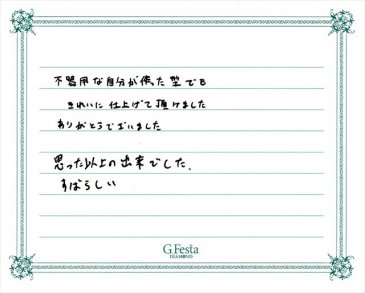 不器用な自分が使った型でも
きれいに仕上げて頂けました
ありがとうございました
思った以上の出来でした.
すばらしい
G.Festa
DIAMOND